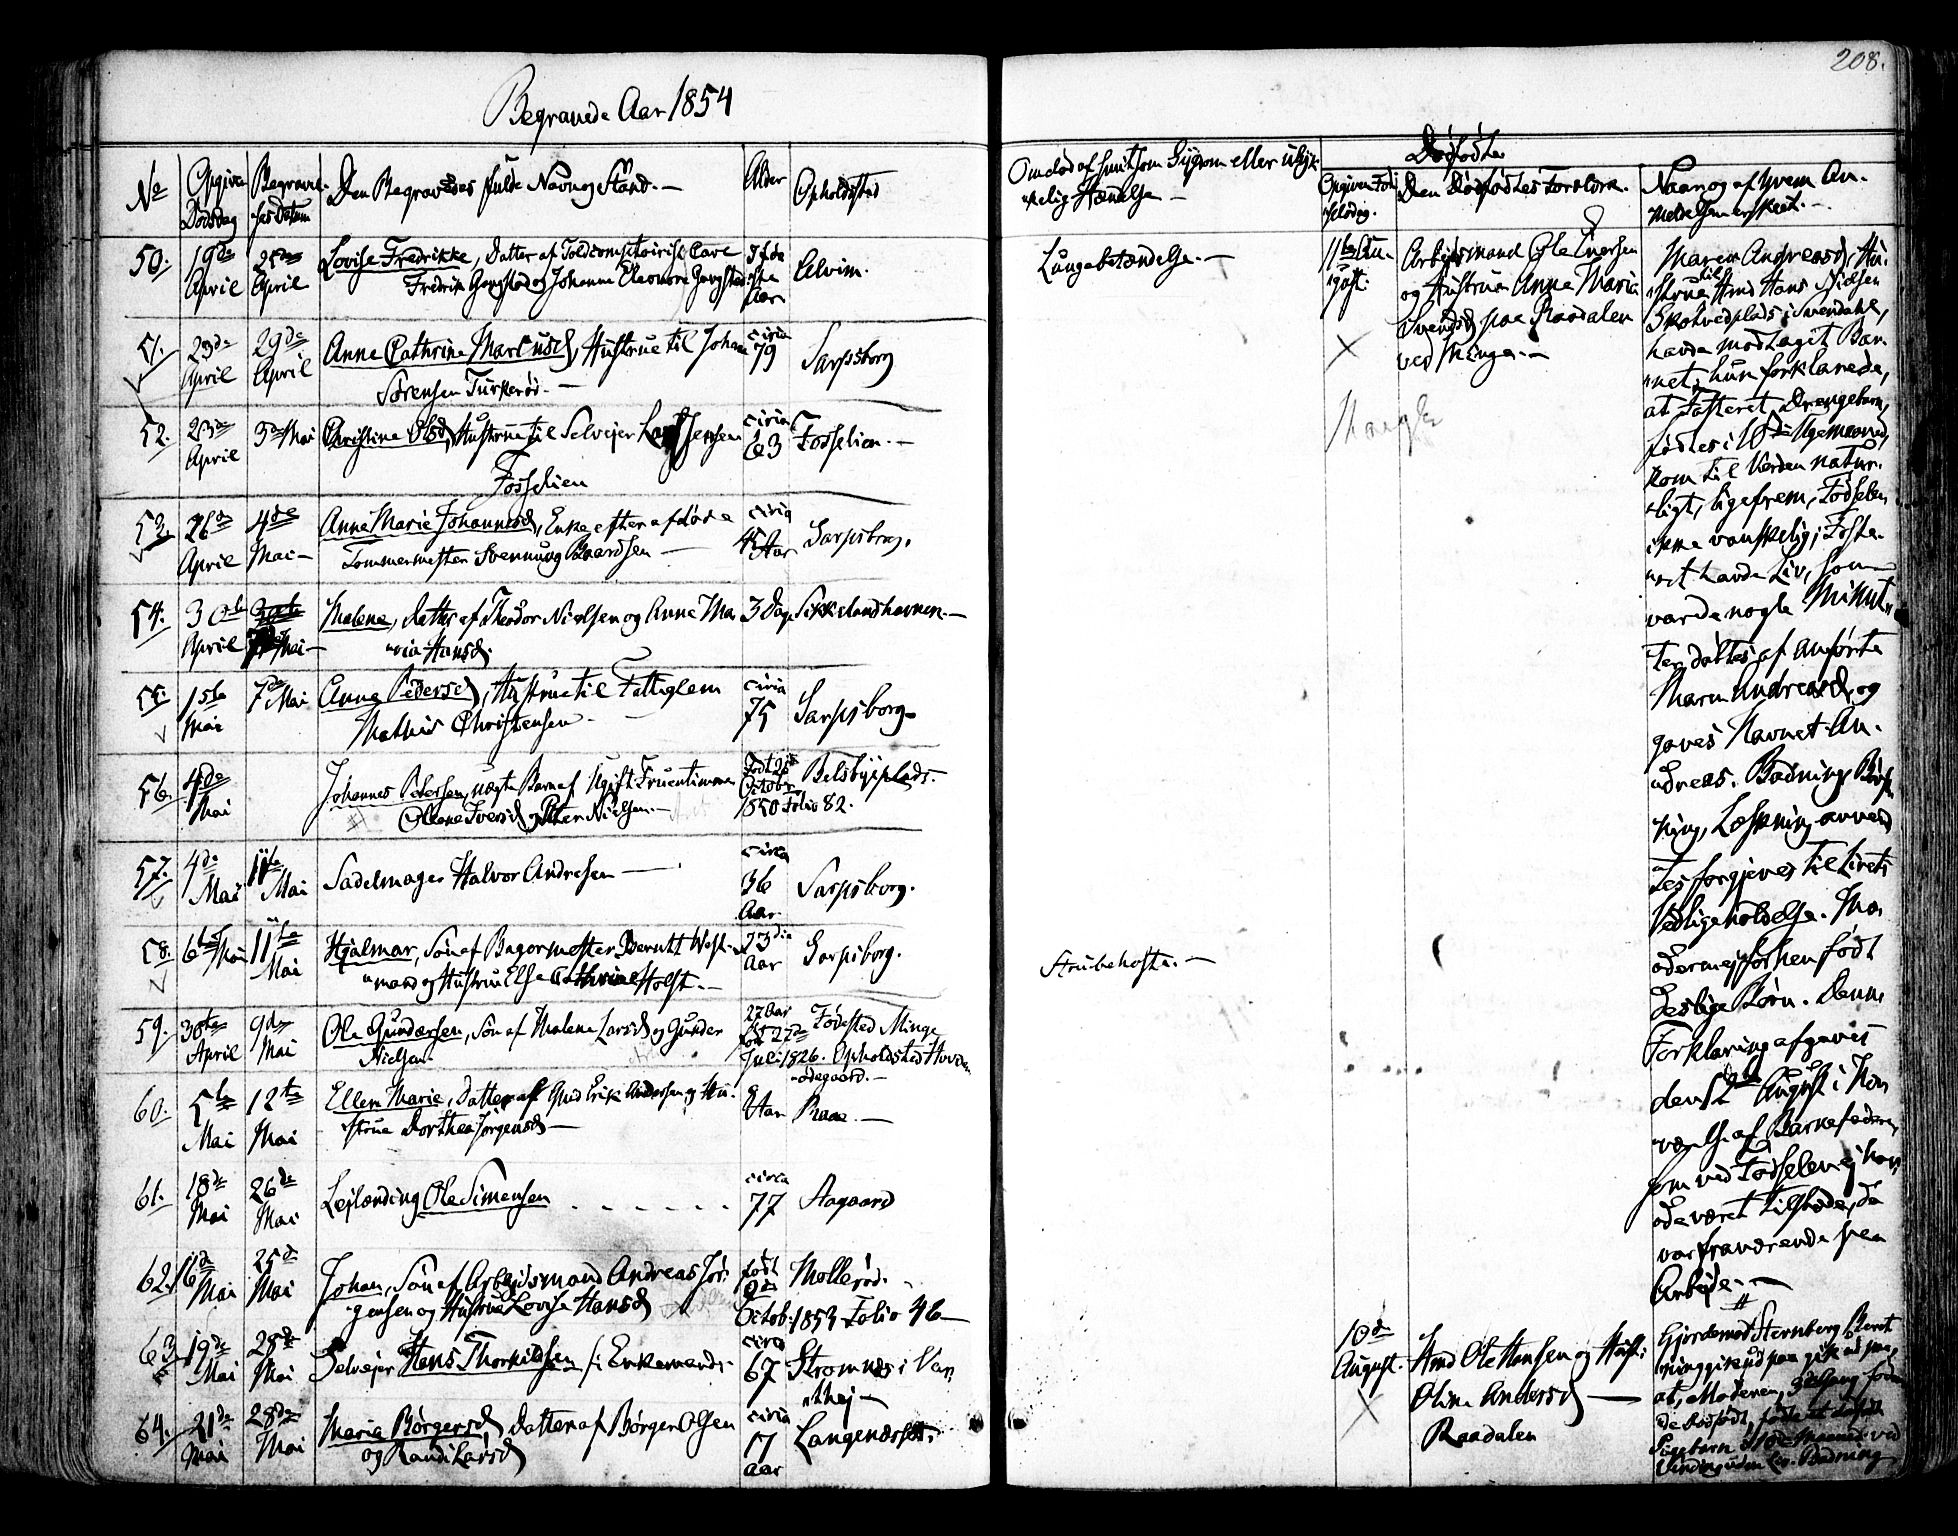 208.
Begravede Aar 1854
No
Opgiven Dødsdag
Begravelsesdatum
Den Begravedes fulde Navn og Stand. —
Alder
Opholdssted
50. 19de April 25de April Lovise Fredrikke, Datter af
Fredrik og Johanne Eleonore
Aar
Alvim.
Lungebetændelse. —
51. 23de April 29de April Anne Cathrine Marcusd, Hustrue til Johan
Sørensen Turkerød. —
circa 79 Sarpsborg
52. 23de April 3de Mai Christine Olsd, Hustrue til Selveier Jensen
Fosselien
circa 63 Fosselien. —
53. 26de April 4de Mai — Anne Marie Johannesd, Enke efter afdøde
Tømmermester Svennung Baardsen —
circa 45 Aar Sarpsborg.
54. 30te April Mai — Malene, Datter af Theodor Nielsen og Anne Ma
"ria Hansd.
3 Dage Sikkelandhavnen. —
55. 1ste Mai 7de Mai Anne Pedersd, Hustrue til Fattiglem
Mathis Christensen —
circa 75 Sarpsborg.
56. 4de Mai Johannes Petersen, uægte Barn af Ugift Fruentimmer
Olene Iversd og Peter Nielsen. —
Født Octobr 1850 Folio 82.
Belsbyeplads. —
57. 4de Mai 11te Mai Sadelmager Halvor Andresen —
circa 36 Aar. Sarpsborg.
58. 6te Mai 11te Mai Hjalmar, Søn af Bagermester Berntt West-
"mand og Hustrue Else Cathrine Holst. —
Aar Sarpsborg.
Strubehoste. —
59. 30te April 9de Mai Ole Gundersen, Søn af Malene Larsd og Gunder
Nielsen.
27 Aar født 27de Juli 1826. Fødested Minge
Opholdsted
-ødegaard. —
60. 5te Mai 12te Mai Ellen Marie, Datter af Erik Andersen og Hu-
strue Dorthea Jørgensd —
Aar
61. 18de Mai 26de Mai Leilænding Ole Simensen
circa 77 Aagaard
62. 16de Mai 25de Mai Johan, Søn af Arbeidsmand Andreas Jør-
gensen og Hustrue Lovise Hansd
født 9de Octob: 1853 Folio 46 —
Møllerød.
63. 19de Mai 28de Mai Selveier Hans Thorkildsen / Enkemand.
circa 67 Strømnes i Var-
"theig —
64. 21de Mai 28de Mai Marie Børgersd Datter af Børger Olsen
og Randi Larsd
circa 17 Aar
Om død af smitsom Sygdom eller ulyk-
kelig Hændelse —
Dødfødte
Opgiven Fød-
selsdag.
Den Dødfødtes Forældre. —
Navn og af hvem An-
meldelsen er skeet. —
11te Au-
gust.
Arbeidsmand Ole Iversen
og Hustrue Anne Maria
Svendsd paa Raadalen
ved Minge. —
Maren Andreasd, Hu-
strue til Hans Nielsen
Skotvedplads i Svendahl,
havde modtaget Bar-
net; hun forklarede,
at Fosteret, Drengebarn,
fødtes i Ugemaaned,
kom til Verden natur-
ligt, ligefrem, Fødselen
ikke vanskelig; Foste-
ret havde Liv, som
varede nogle Minut-
ter, døbtes af anførte
Maren Andreasd, og
gaves Navnet An-
dreas. Badning, Børst-
ning, Læskning anvend-
tes forgjeves til Livets
Vedligeholdelse. Mo-
deren ei før hen født
deslige Børn. Denne
Forklaring afgaves
den 12te August i Nær-
vær af Barnefaderen,
som ved Fødselen ei hav-
de været tilstede, da
var fraværende paa
Arbeide. —
10de
August.
Ole Hansen og Hust:
Oline Andersd —
Raadalen
Gjordemod Sternberg
at, Moderen, 3de Gang
Verden uden Liv. Badning